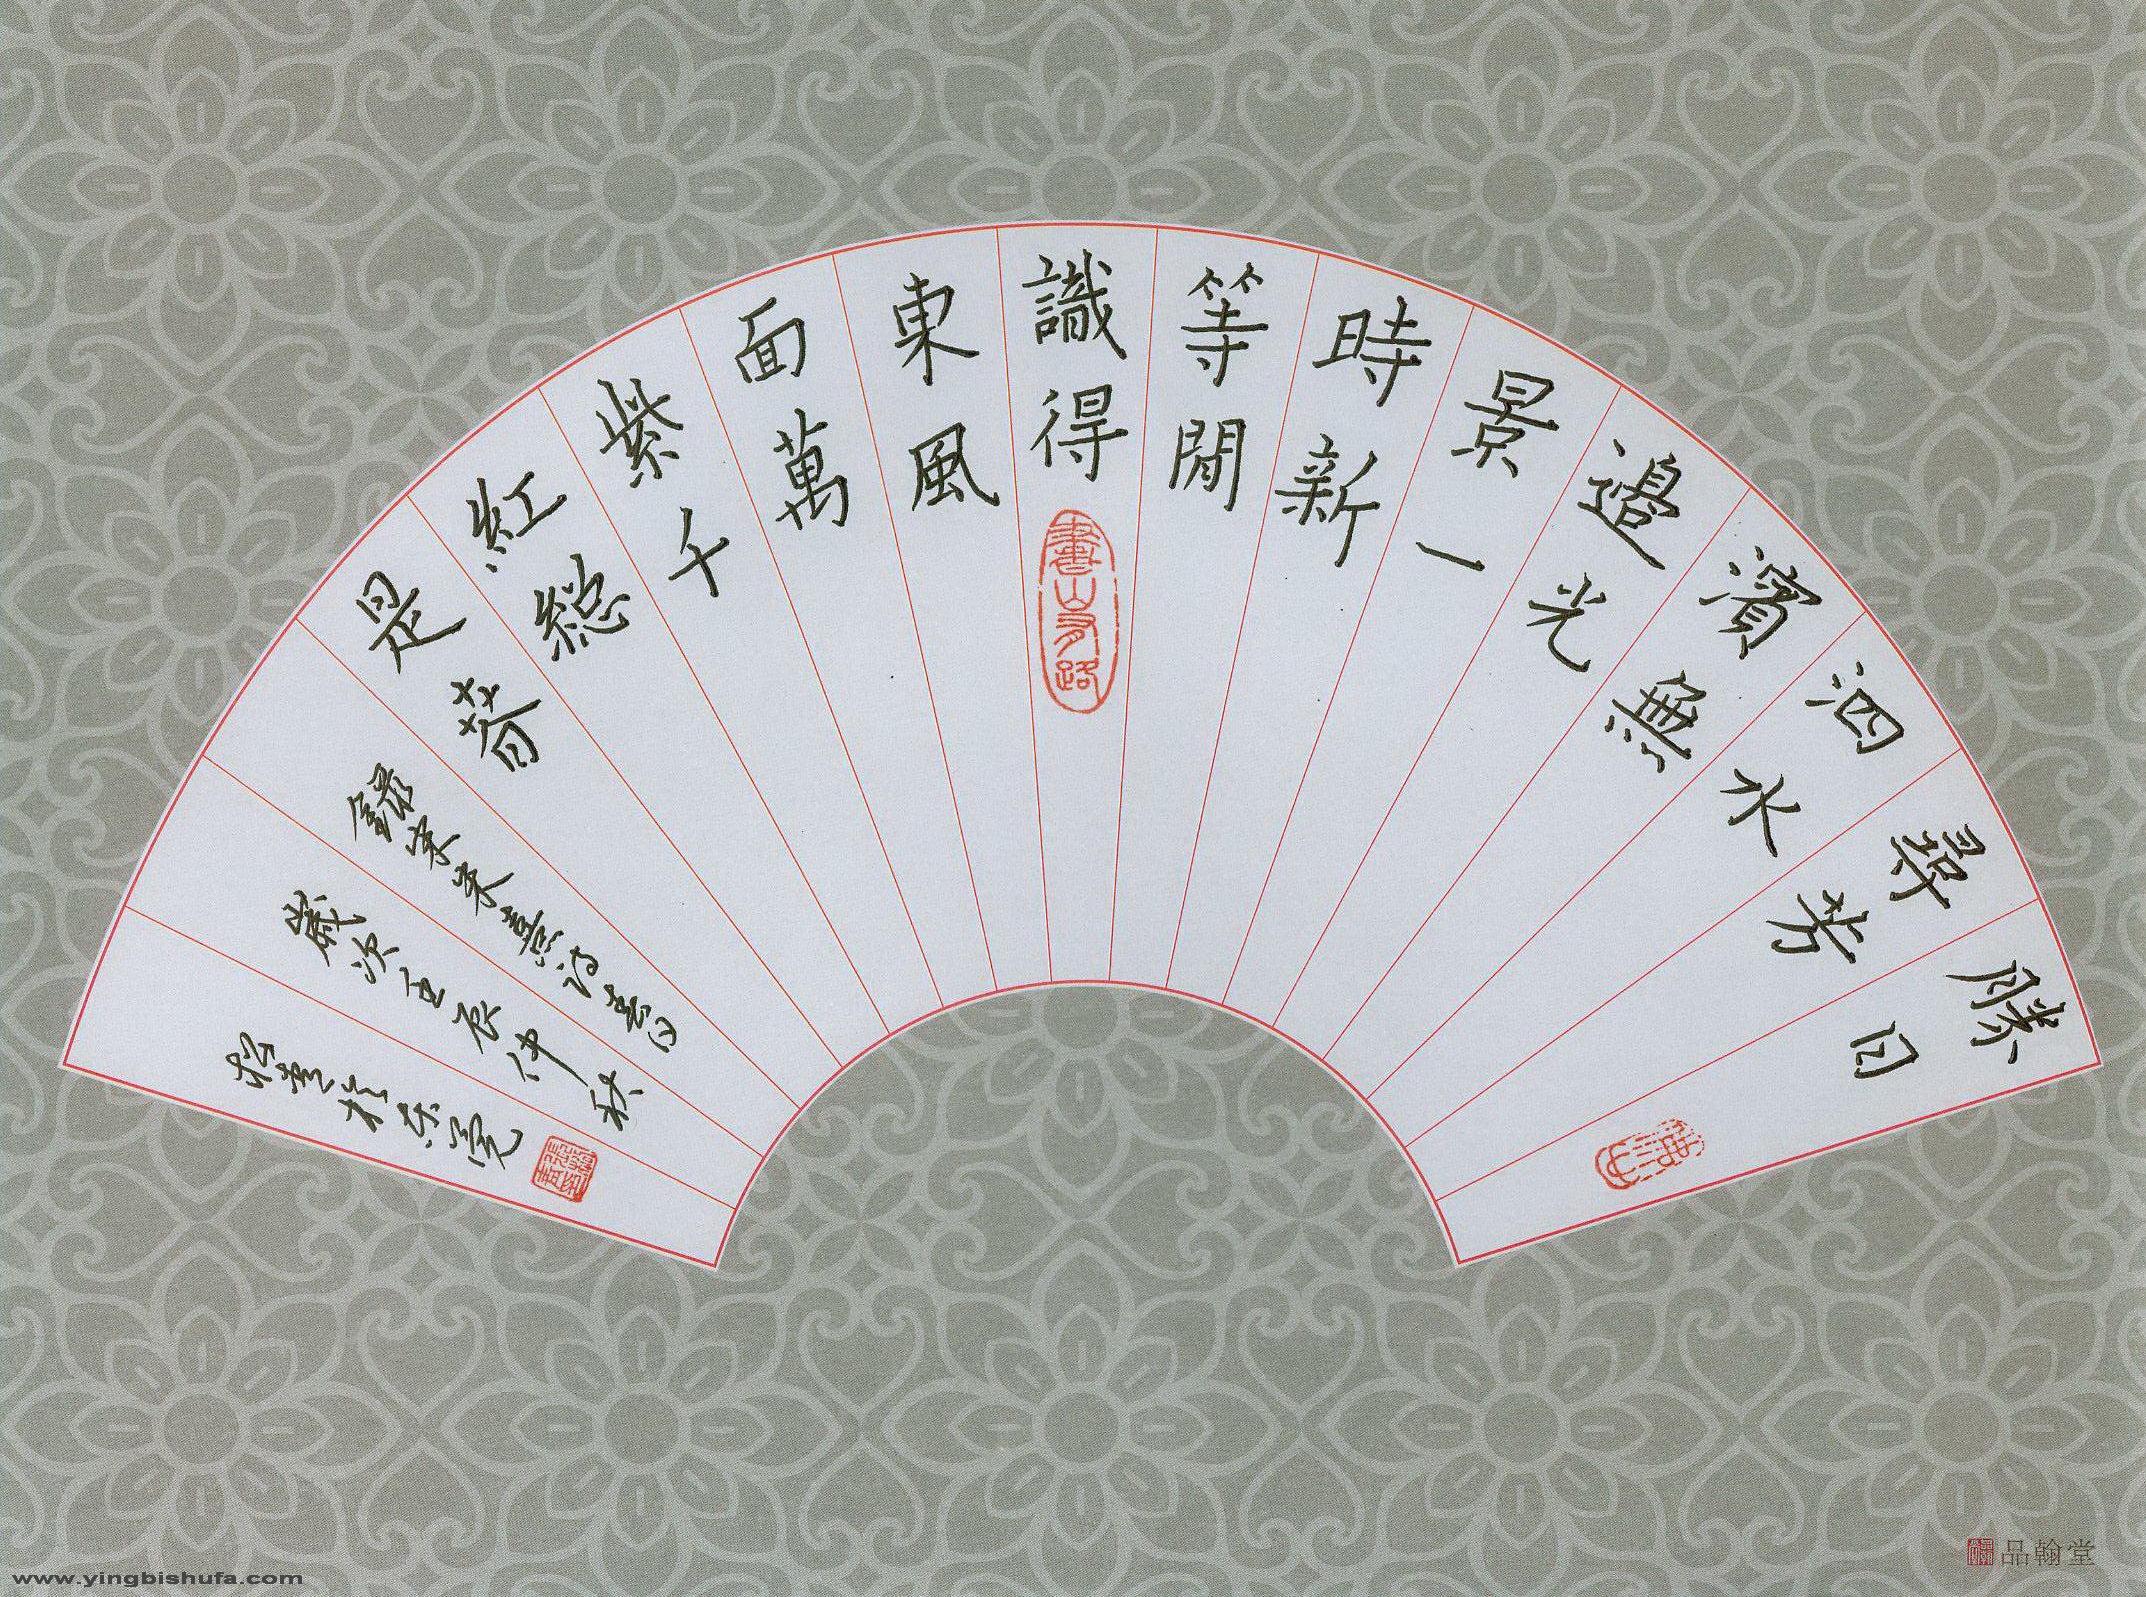 勝日
尋芳
泗水
濱無
邊光
景一
時新
等閒
識得
書山有路
東風
面萬
紫千
紅総
是萅
錄宋朱熹詩春日
歲次壬辰仲秋
品翰堂
www.yingbishufa.com